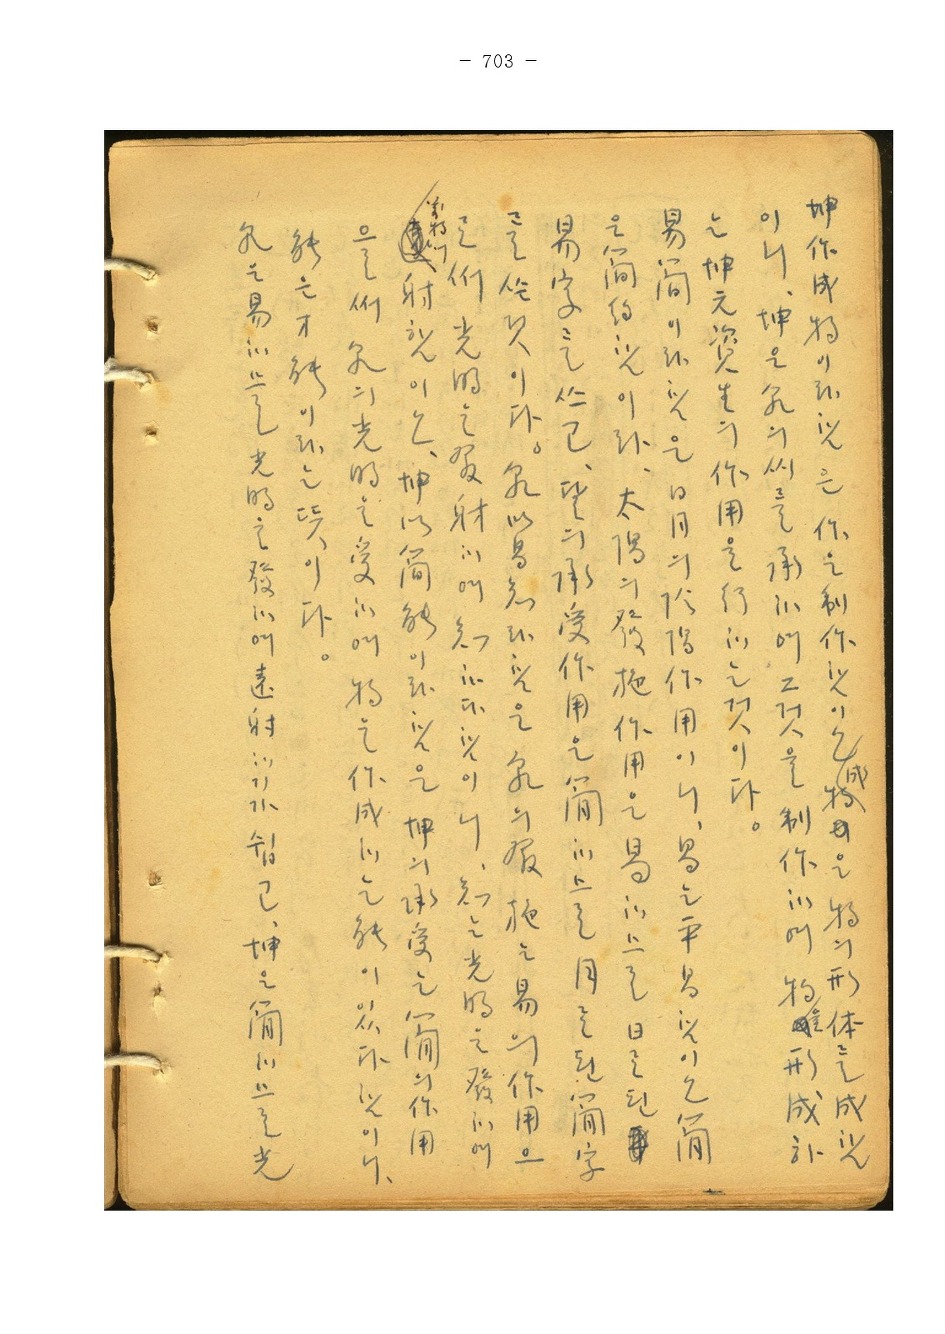 - 703 -
坤作成物이라 함은 作은 制作함이오 成物은 物의 形体를 成함
이니、坤은 乾의 씨를 承하여 그것을 制作하여 物 形成하
는 坤元資生의 作用을 行하는것이다。
易簡이라 함은 日月의 陰陽作用이니、易는 平易함이오 簡
은 簡約함이라、太陽의 發施作用은 易하므로 日로된
易字를 쓰고、달의 承受作用은 簡하므로 月로된 簡字
를 쓴것이다。乾以易知라 함은 乾의 發施는 易의 作用으
로써 光明을 發射하여 知한다 함이니、知는 光明을 發하여
萬物에 射함이오、坤以簡能이라 함은 坤의 承受는 簡의 作用
으로써 乾의 光明을 受하여 物을 作成하는 能이 있다 함이니、
能은 才能이라는 뜻이다。
乾은 易하므로 光明을 發하여 遠射하기가 쉽고、坤은 簡하므로 光